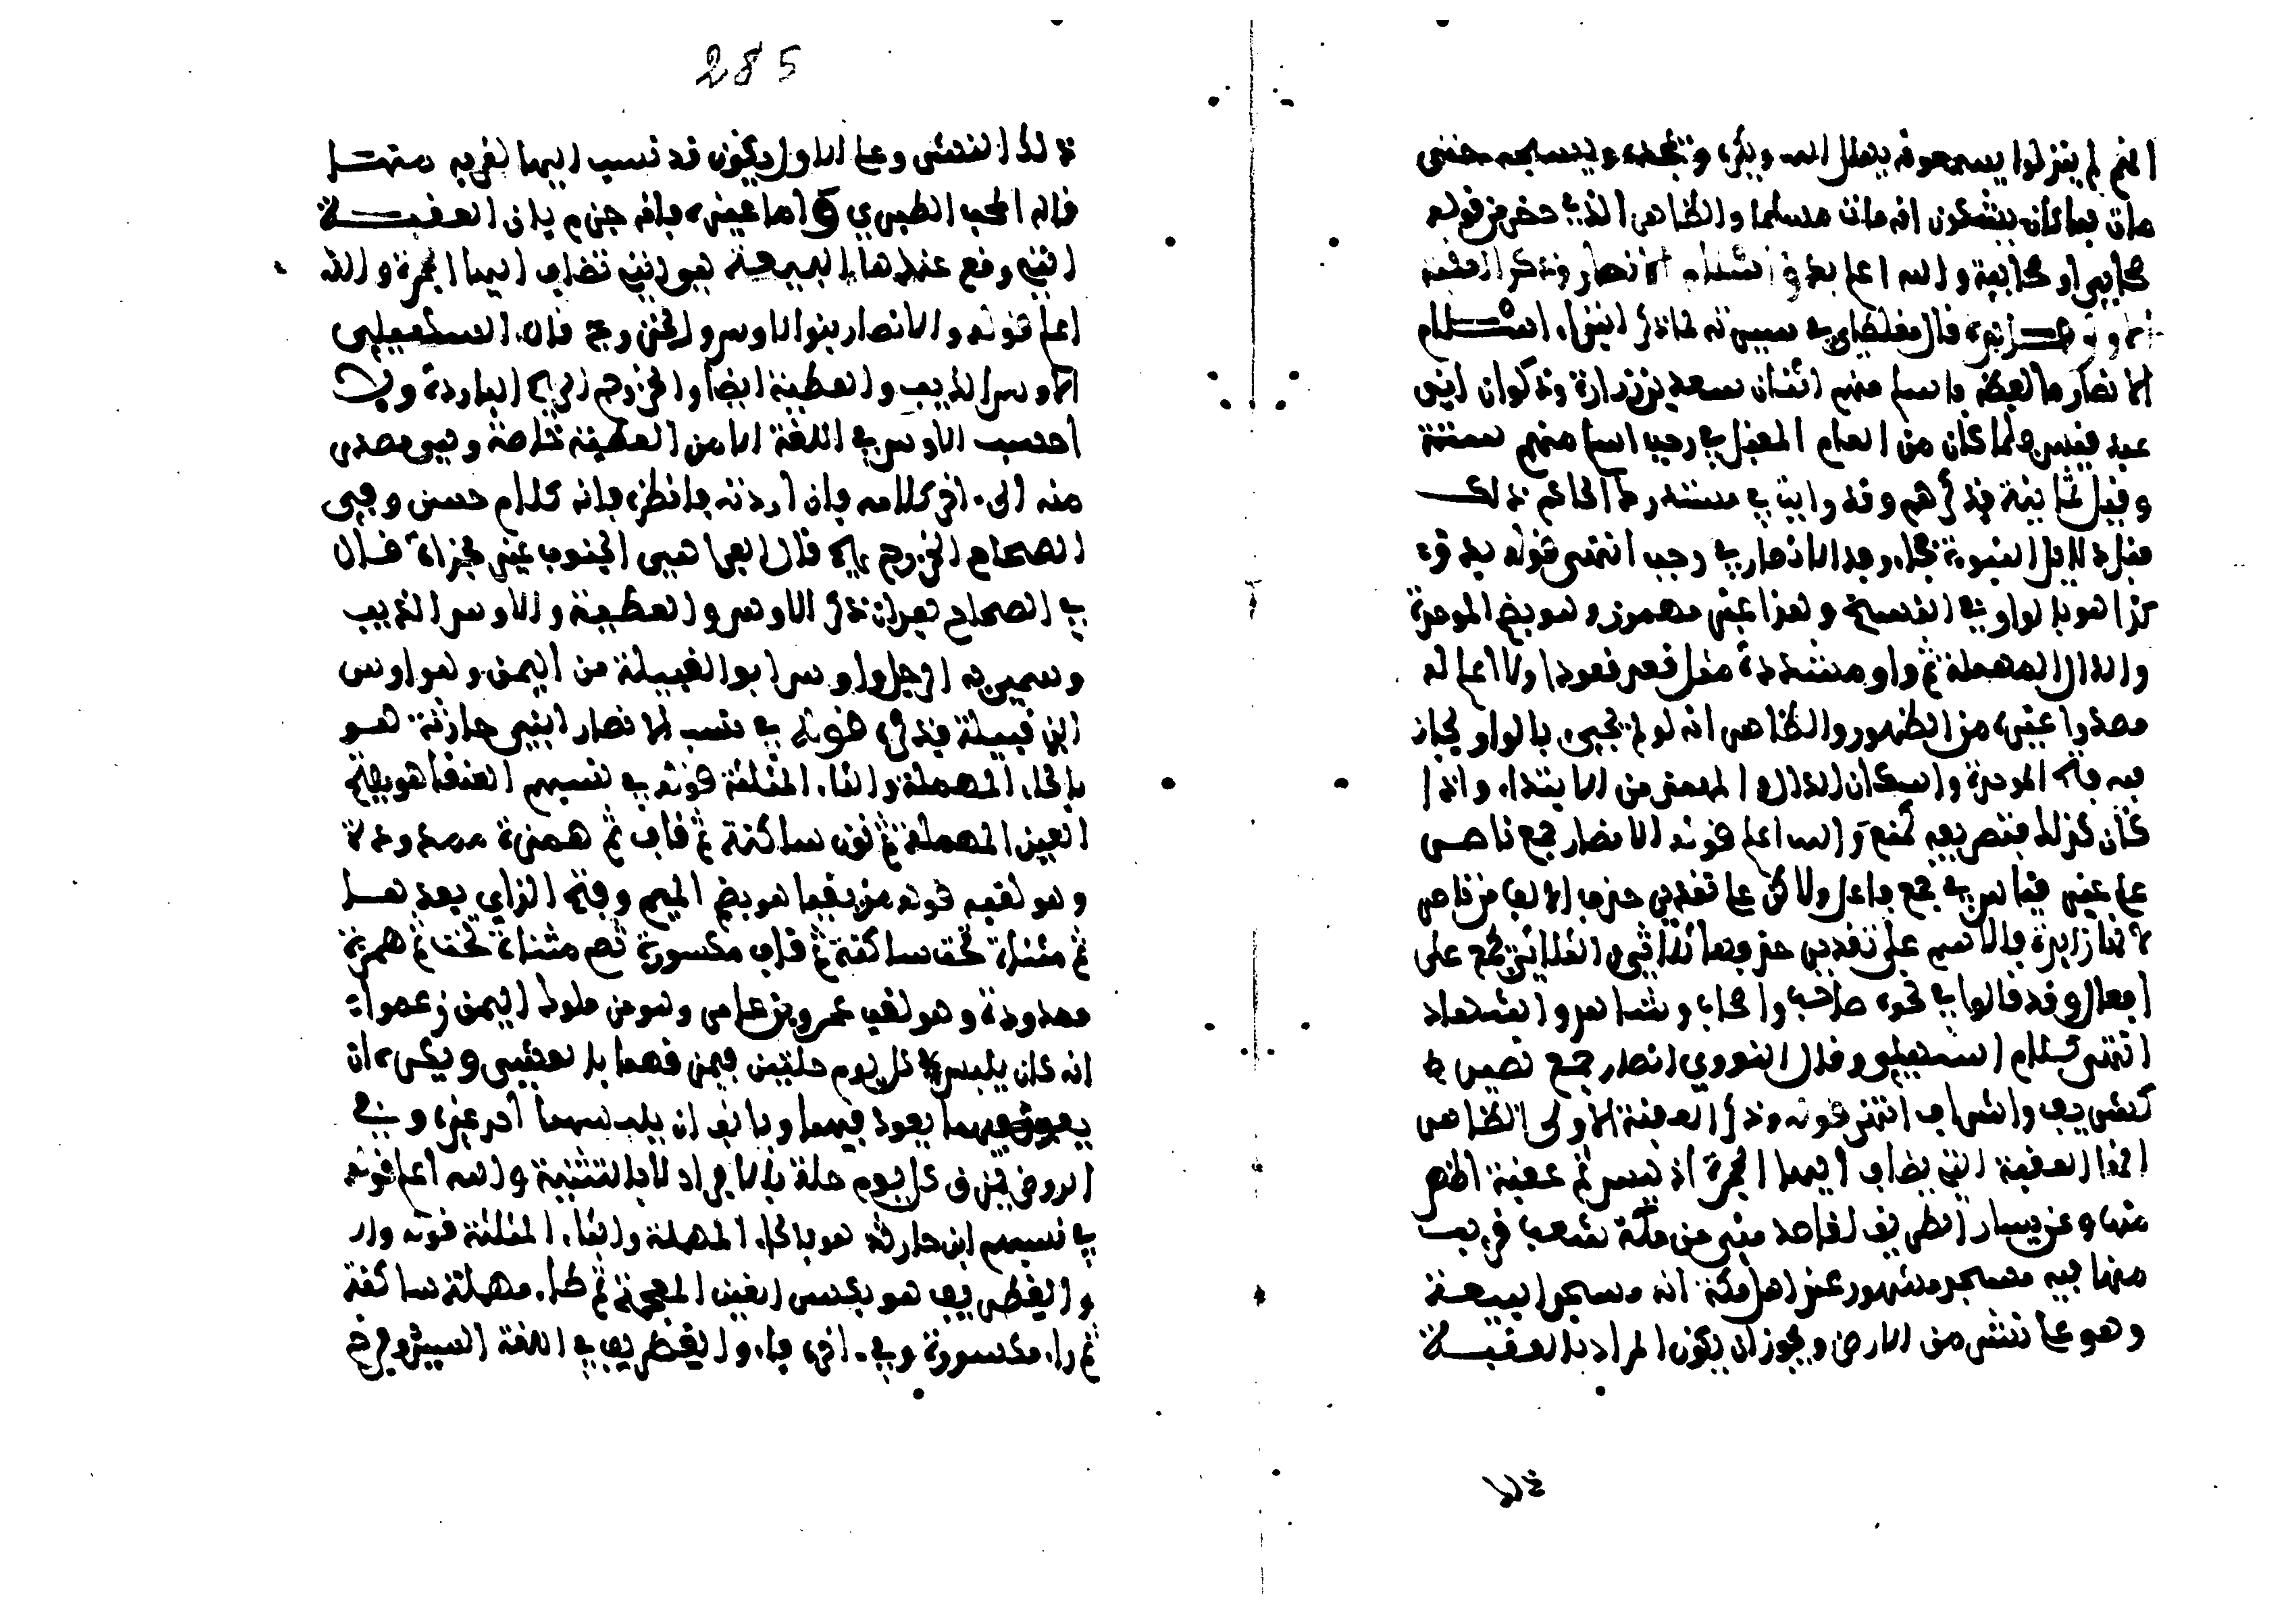 انهم لم يزلوا يسمعونه يهلل الله ويكبره ويحمده ويسبحه حتى
مات فما كان يشكون انه مات مسلما والظاهر الذي حضر من قومه
صحابي او صحابية والله اعلم بدو اسلام الانصار وذكر العقبة
قال مغلطاي في سيرته لما ذكر ابتداء اسلام
الانصار ما لفظه واسلم منهم اثنان سعد بن زرارة وذكوان ابن
عبد قيس فلما كان من العام المقبل في رجب اسلم منهم ستة
وقيل ثمانية فذكرهم وقد رايت في مستدرك الحاكم ذلك
قبله دلايل النبوة فجاء وفد الانصار في رجب انتهى قوله بدو
كذا هو بالواو في النسخ وهذا غير مهموز وهو بضم الموحدة
والدال المهملة ثم واو مشددة مثل قعد قعودا ولا اعلم له
مصدرا غيره من الظهور والظاهر انه لو لم يجيء بالواو لجاز
فيه فتح الموحدة واسكان الدال والهمز من الابتداء واذا
كان كذلك فتصريفه كمنع والله اعلم قوله الانصار جمع ناصر
على غير قياس في جمع فاعل ولاكن على تقدير حذف الالف من ناصر
لانها زايدة فالاسم على تقدير حذفها ثلاثي والثلاثي يجمع على
افعال وقد قالوا في نحوه صاحب واصحاب وشاهد واشهاد
انتهى كلام السهيلي وقال النووي انصار جمع نصير
كشريف واشراف انتهى قوله وذكر العقبة الاولى الظاهر
انها العقبة التي يضاف اليها الجمرة اذ ليس ثم عقبة اظهر
منها وعن يسار الطريق لقاصد منى من مكة شعب قريب
منها فيه مسجد مشهور عند اهل مكة انه مسجد البيعة
وهو على نشز من الارض ويجوز ان يكون المراد بالعقبة
285
ذلك النشز وعلى الاول يكون قد نسب اليها لقربه منها
قاله المحب الطبري واما غيره فانه جزم بان العقبة
التي وقع عندها البيعة هي التي تضاف اليها الجمرة والله
اعلم قوله والانصار بنوا الاوس والخزرج قال السهيلي
الاوس الذيب والعطية ايضا والخزرج الريح الباردة ولا
احسب الاوس في اللغة الا من العطية خاصة وهي مصدر
منه الى اخر كلامه فان اردته فانظره فانه كلام حسن وفي
الصحاح الخزرج ريح قال الفراء هي الجنوب غير مجراة قال
في الصحاح بعد ان ذكر الاوس والعطية والاوس الذيب
وسمي به الرجل واوس ابو القبيلة من اليمن وهو اوس
ابن قيلة فذكره قوله في نسب الانصار ابني حارثة هو
بالحاء المهملة والثاء المثلثة قوله في نسبهم العنقا هو بفتح
العين المهملة ثم نون ساكنة ثم قاف ثم همزة ممدودة
وهو لقبه قوله مزيقيا هو بضم الميم وفتح الزاي بعدها
ثم مثناة تحت ساكنة ثم قاف مكسورة ثم مثناة تحت ثم همزة
ممدودة وهو لقب عمرو بن عامر وهو من ملوك اليمن زعموا
انه كان يلبس كل يوم حلتين فيمزقهما بالعشي ويكره ان
يعود فيهما ويانف ان يلبسهما احد غيره وفي
الروض يمزق كل يوم حلة بالافراد لا بالتثنية والله اعلم قوله
في نسبهم ابن حارثة هو بالحاء المهملة والثاء المثلثة قوله
والغطريف هو بكسر الغين المعجمة ثم طاء مهملة ساكنة
ثم راء مكسورة وفي اخره فاء والغطريف في اللغة السيد وفرخ